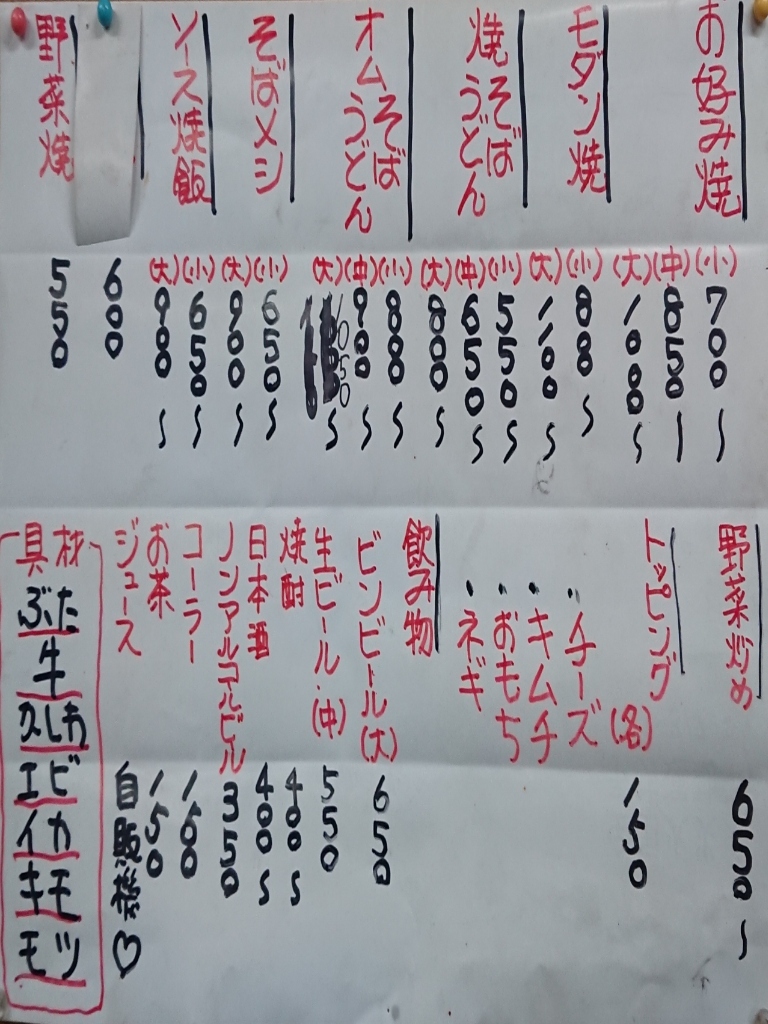 お好み焼
(小) 700〜
(中) 850〜
(大) 1000〜
モダン焼
(小) 800〜
(大) 1100〜
焼そば
うどん
(小) 550〜
(中) 650〜
(大) 800〜
オムそば
うどん
(小) 800〜
(中) 900〜
(大) 1050〜
そばメシ
(小) 650〜
(大) 900〜
ソース焼飯
(小) 650〜
(大) 900〜
600
野菜焼 550
野菜炒め 650〜
トッピング(各) 150
・チーズ
・キムチ
・おもち
・ネギ
飲み物
ビンビール(大) 650
生ビール(中) 550
焼酎 400〜
日本酒 400〜
ノンアルコールビール 350
コーラー 150
お茶 150
ジュース 自販機♡
具材
ぶた
牛
エビ
イカ
キモ
モツ